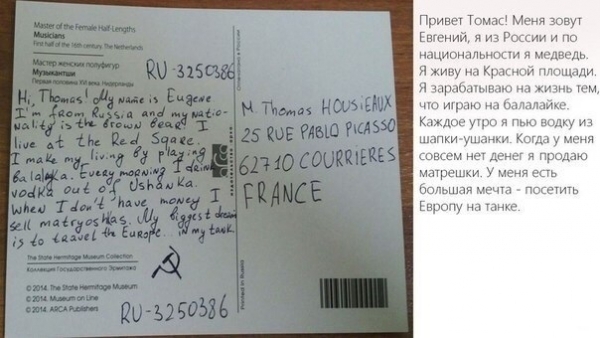 Master of the Female Half-Lengths
Musicians
First half of the 16th century. The Netherlands
Мастер женских полуфигур
Музыкантши
Первая половина XVI века. Нидерланды
RU-3250386
Hi, Thomas! My name is Eugene.
I'm from Russia and my natio-
nality is the brown bear. I
live at the Red Sqare.
I make my living by playing
balalayka. Every morning I drink
vodka out of Ushanka.
When I don't have money I
sell matryoshas. My biggest dream
is to travel the Europe... in my tank.
The State Hermitage Museum Collection
Коллекция Государственного Эрмитажа
© 2014. The State Hermitage Museum
© 2014. Museum on Line
© 2014. ARCA Publishers
RU-3250386
M Thomas HOUSIEAUX
25 RUE PABLO PICASSO
62710 COURRIERES
FRANCE
Printed in Russia
Привет Томас! Меня зовут
Евгений, я из России и по
национальности я медведь.
Я живу на Красной площади.
Я зарабатываю на жизнь тем,
что играю на балалайке.
Каждое утро я пью водку из
шапки-ушанки. Когда у меня
совсем нет денег я продаю
матрешки. У меня есть
большая мечта - посетить
Европу на танке.